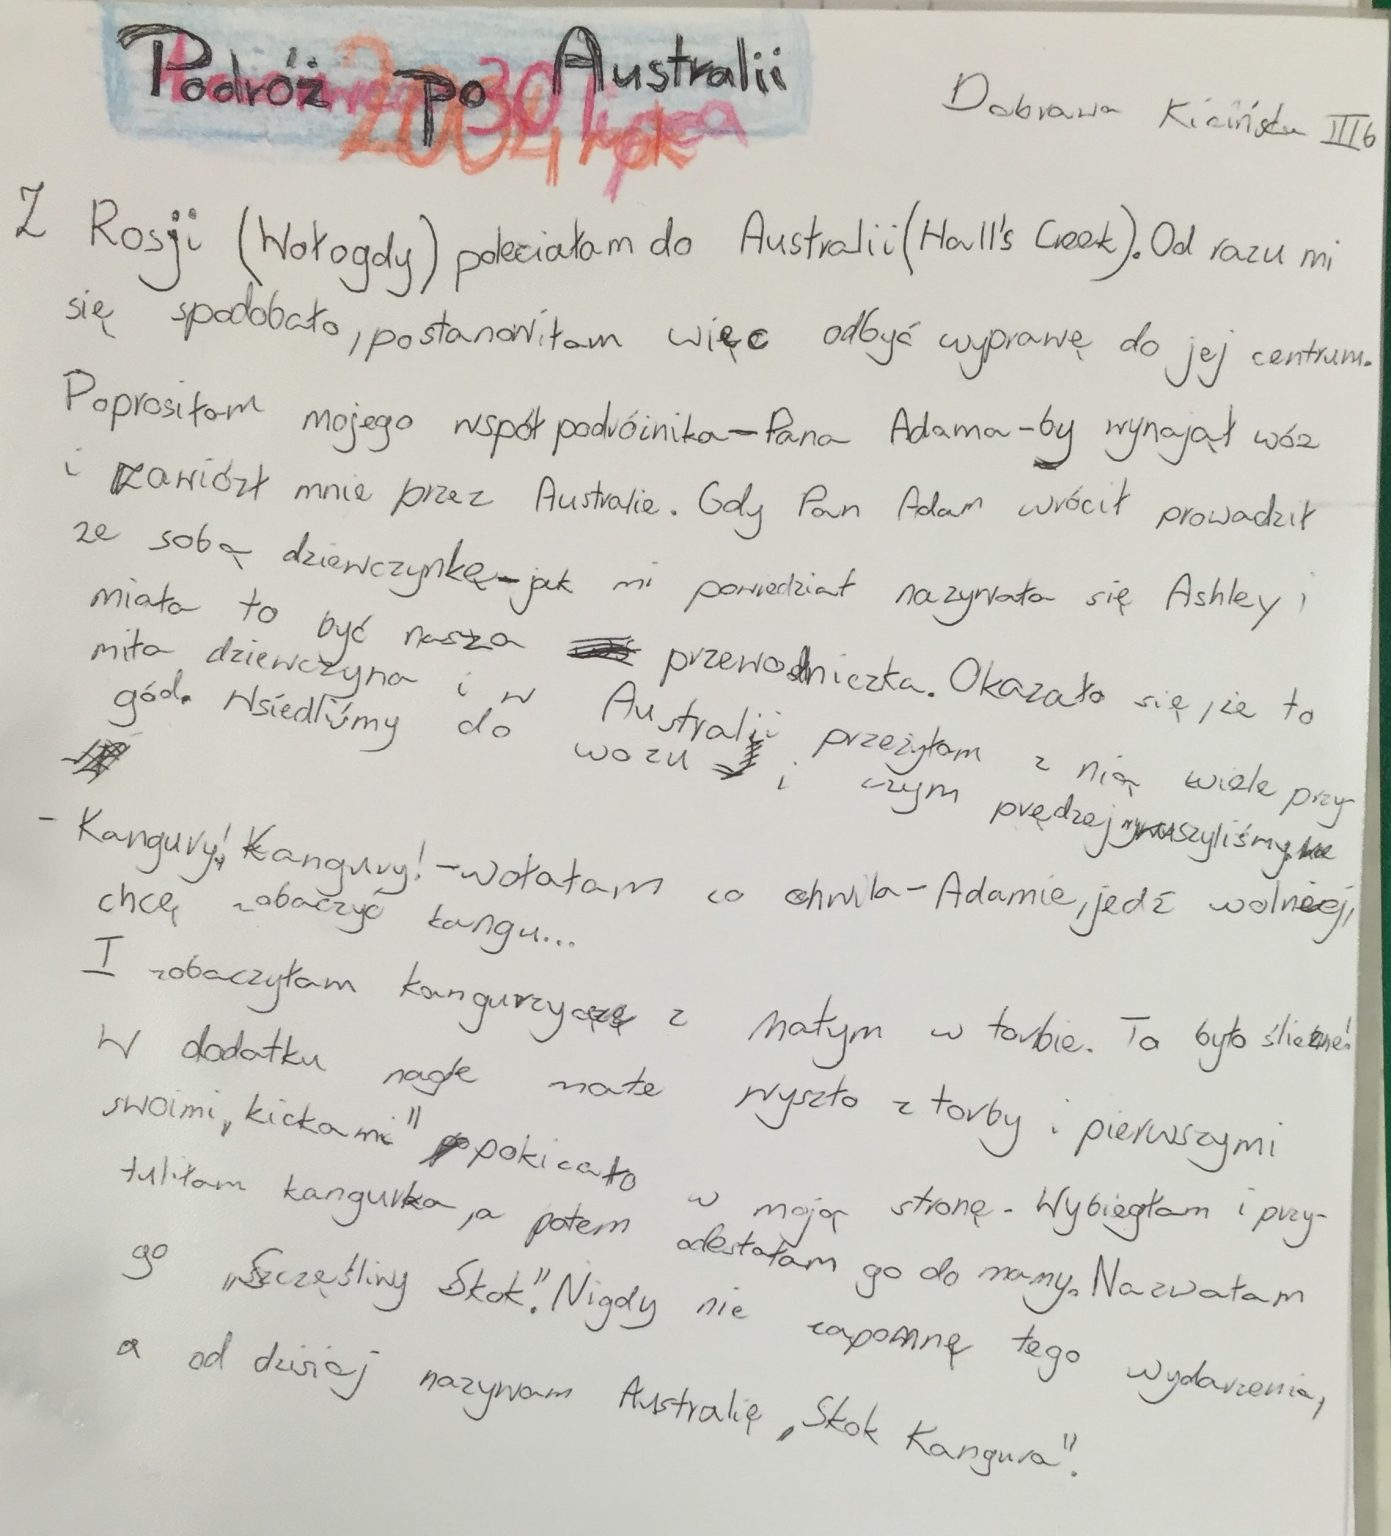 Podróż po Australii
30 lipca
2004 rok
Dobrawa Kicińska III b
Z Rosji (Wołogdy) poleciałam do Australii (Hall's Creek). Od razu mi
się spodobało, postanowiłam więc odbyć wyprawę do jej centrum.
Poprosiłam mojego współpodróżnika - Pana Adama - by wynajął wóz
i zawiózł mnie przez Australie. Gdy Pan Adam wrócił prowadził
ze sobą dziewczynkę - jak mi powiedział nazywała się Ashley i
miała to być nasza przewodniczka. Okazało się, że to
miła dziewczyna i w Australii przeżyłam z nią wiele przy-
gód. Wsiedliśmy do wozu i czym prędzej wyruszyliśmy.
- Kangury! Kangury! - wołałam co chwila - Adamie, jedź wolniej,
chcę zobaczyć kangu...
I zobaczyłam kangurzycę z małym w torbie. To było śliczne!
W dodatku nagle małe wyszło z torby i pierwszymi
swoimi „kickami" pokicało w moją stronę. Wybiegłam i przy-
tuliłam kangurka, a potem odesłałam go do mamy. Nazwałam
go „Szczęśliwy Skok". Nigdy nie zapomnę tego wydarzenia,
a od dzisiaj nazywam Australię „Skok Kangura".